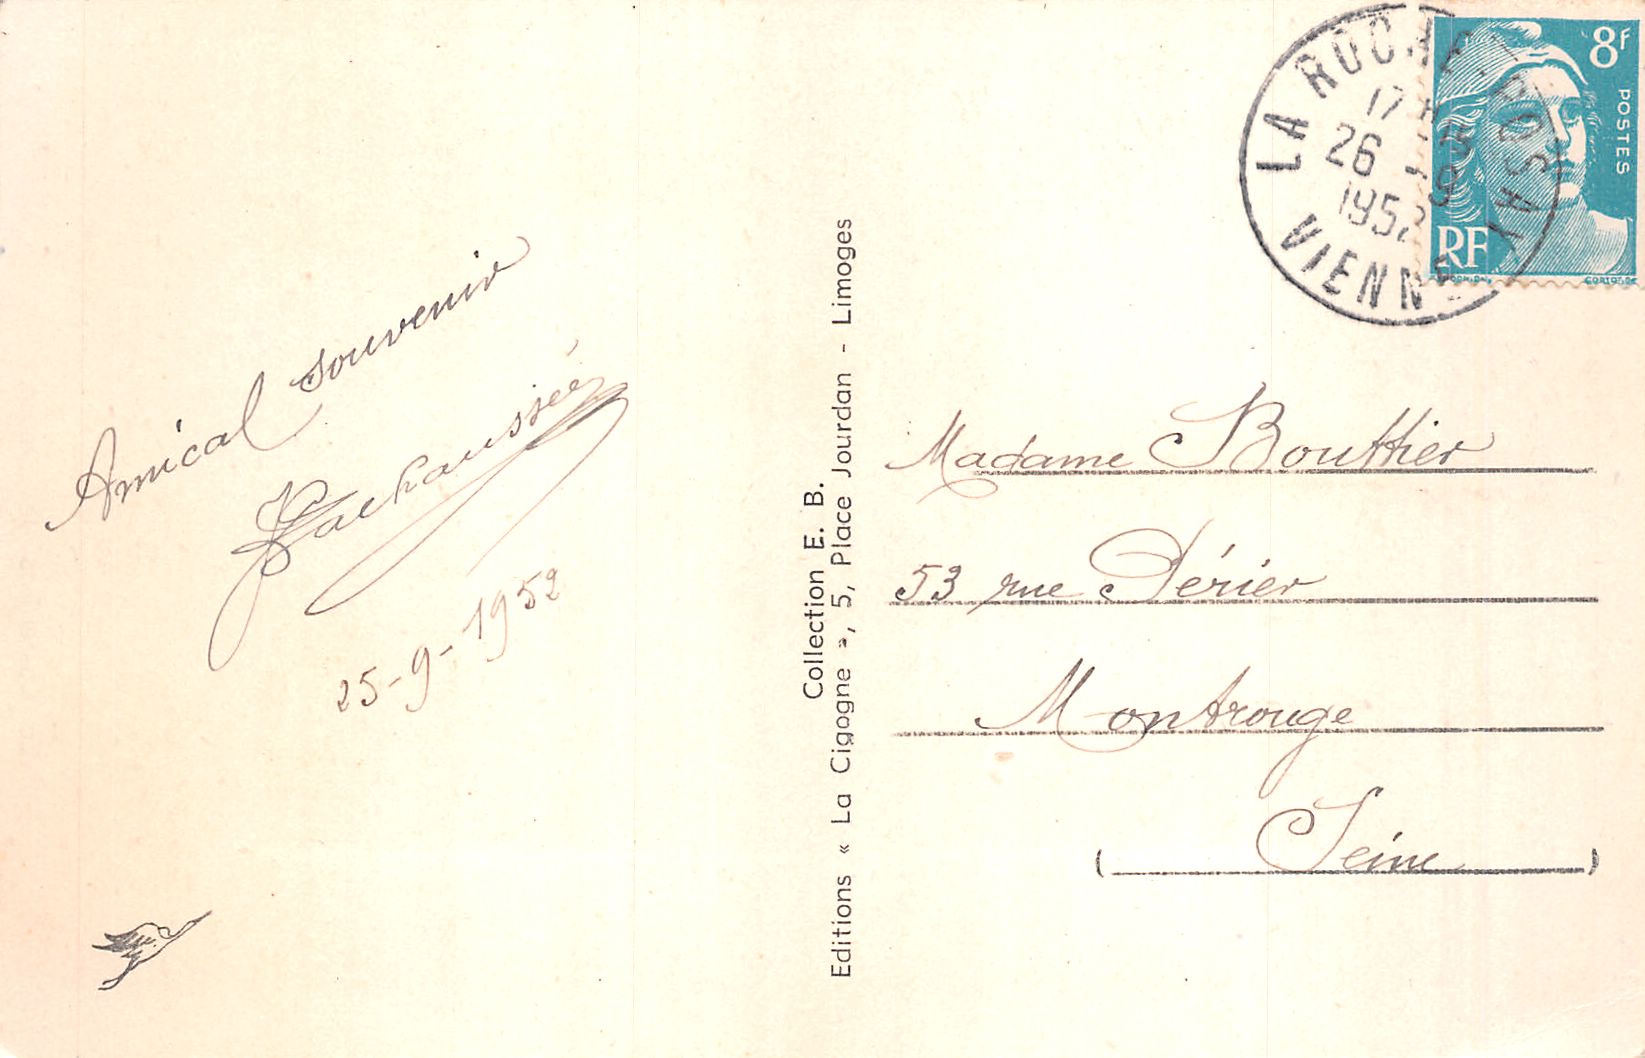 Amical souvenir
25-9-1952
Collection E. B.
Editions « La Cigogne », 5, Place Jourdan - Limoges
LA ROCHE. POSAY
17
26
1952
VIENNE
8F
POSTES
RF
Madame Bouttier
53 rue Périer
Montrouge
( Seine )